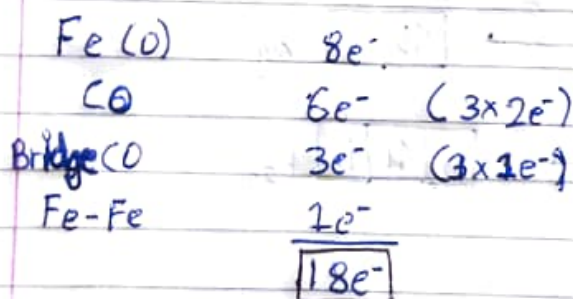 Fe (0) 8e⁻
CO 6e⁻ (3×2e⁻)
Bridge CO 3e⁻ (3×1e⁻)
Fe-Fe 1e⁻
18e⁻